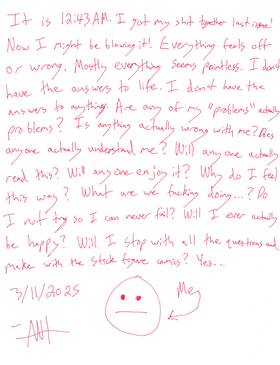 It is 12:43AM. I got my shit together last issue!
Now I might be blowing it! Everything feels off
or wrong. Mostly everything seems pointless. I don't
have the answers to life. I don't have the
answers to anything. Are any of my "problems" actually
problems? Is anything actually wrong with me? Does
anyone actually understand me? Will anyone actually
read this? Will anyone enjoy it? Why do I feel
this way? What are we fucking doing...? Do
I not try so I can never fail? Will I ever actually
be happy? Will I stop with all the questions and
make with the stick figure comics? Yes...
3/11/2025
Me